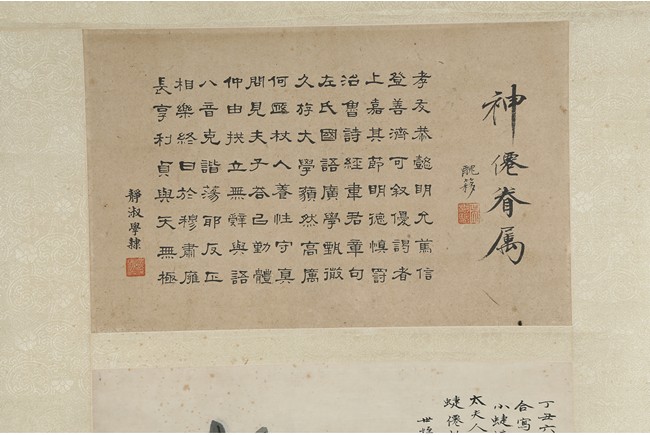 神僊眷属
孝友恭懿明允篤信
登善濟可叙優諤者
上嘉其節明德慎罰
治魯詩經韋君章句
左氏國語廣學甄微
久游大學藐然高厲
何匪杖人養性守真
閒見夫子答已勤體
仲由拱立無辭與語
八音克諧蕩耶反正
相樂終日於穆肅雍
長享利貞與天無極
靜淑學隸
丁丑六
合寫
小蜨
太夫人
蜨僊
世